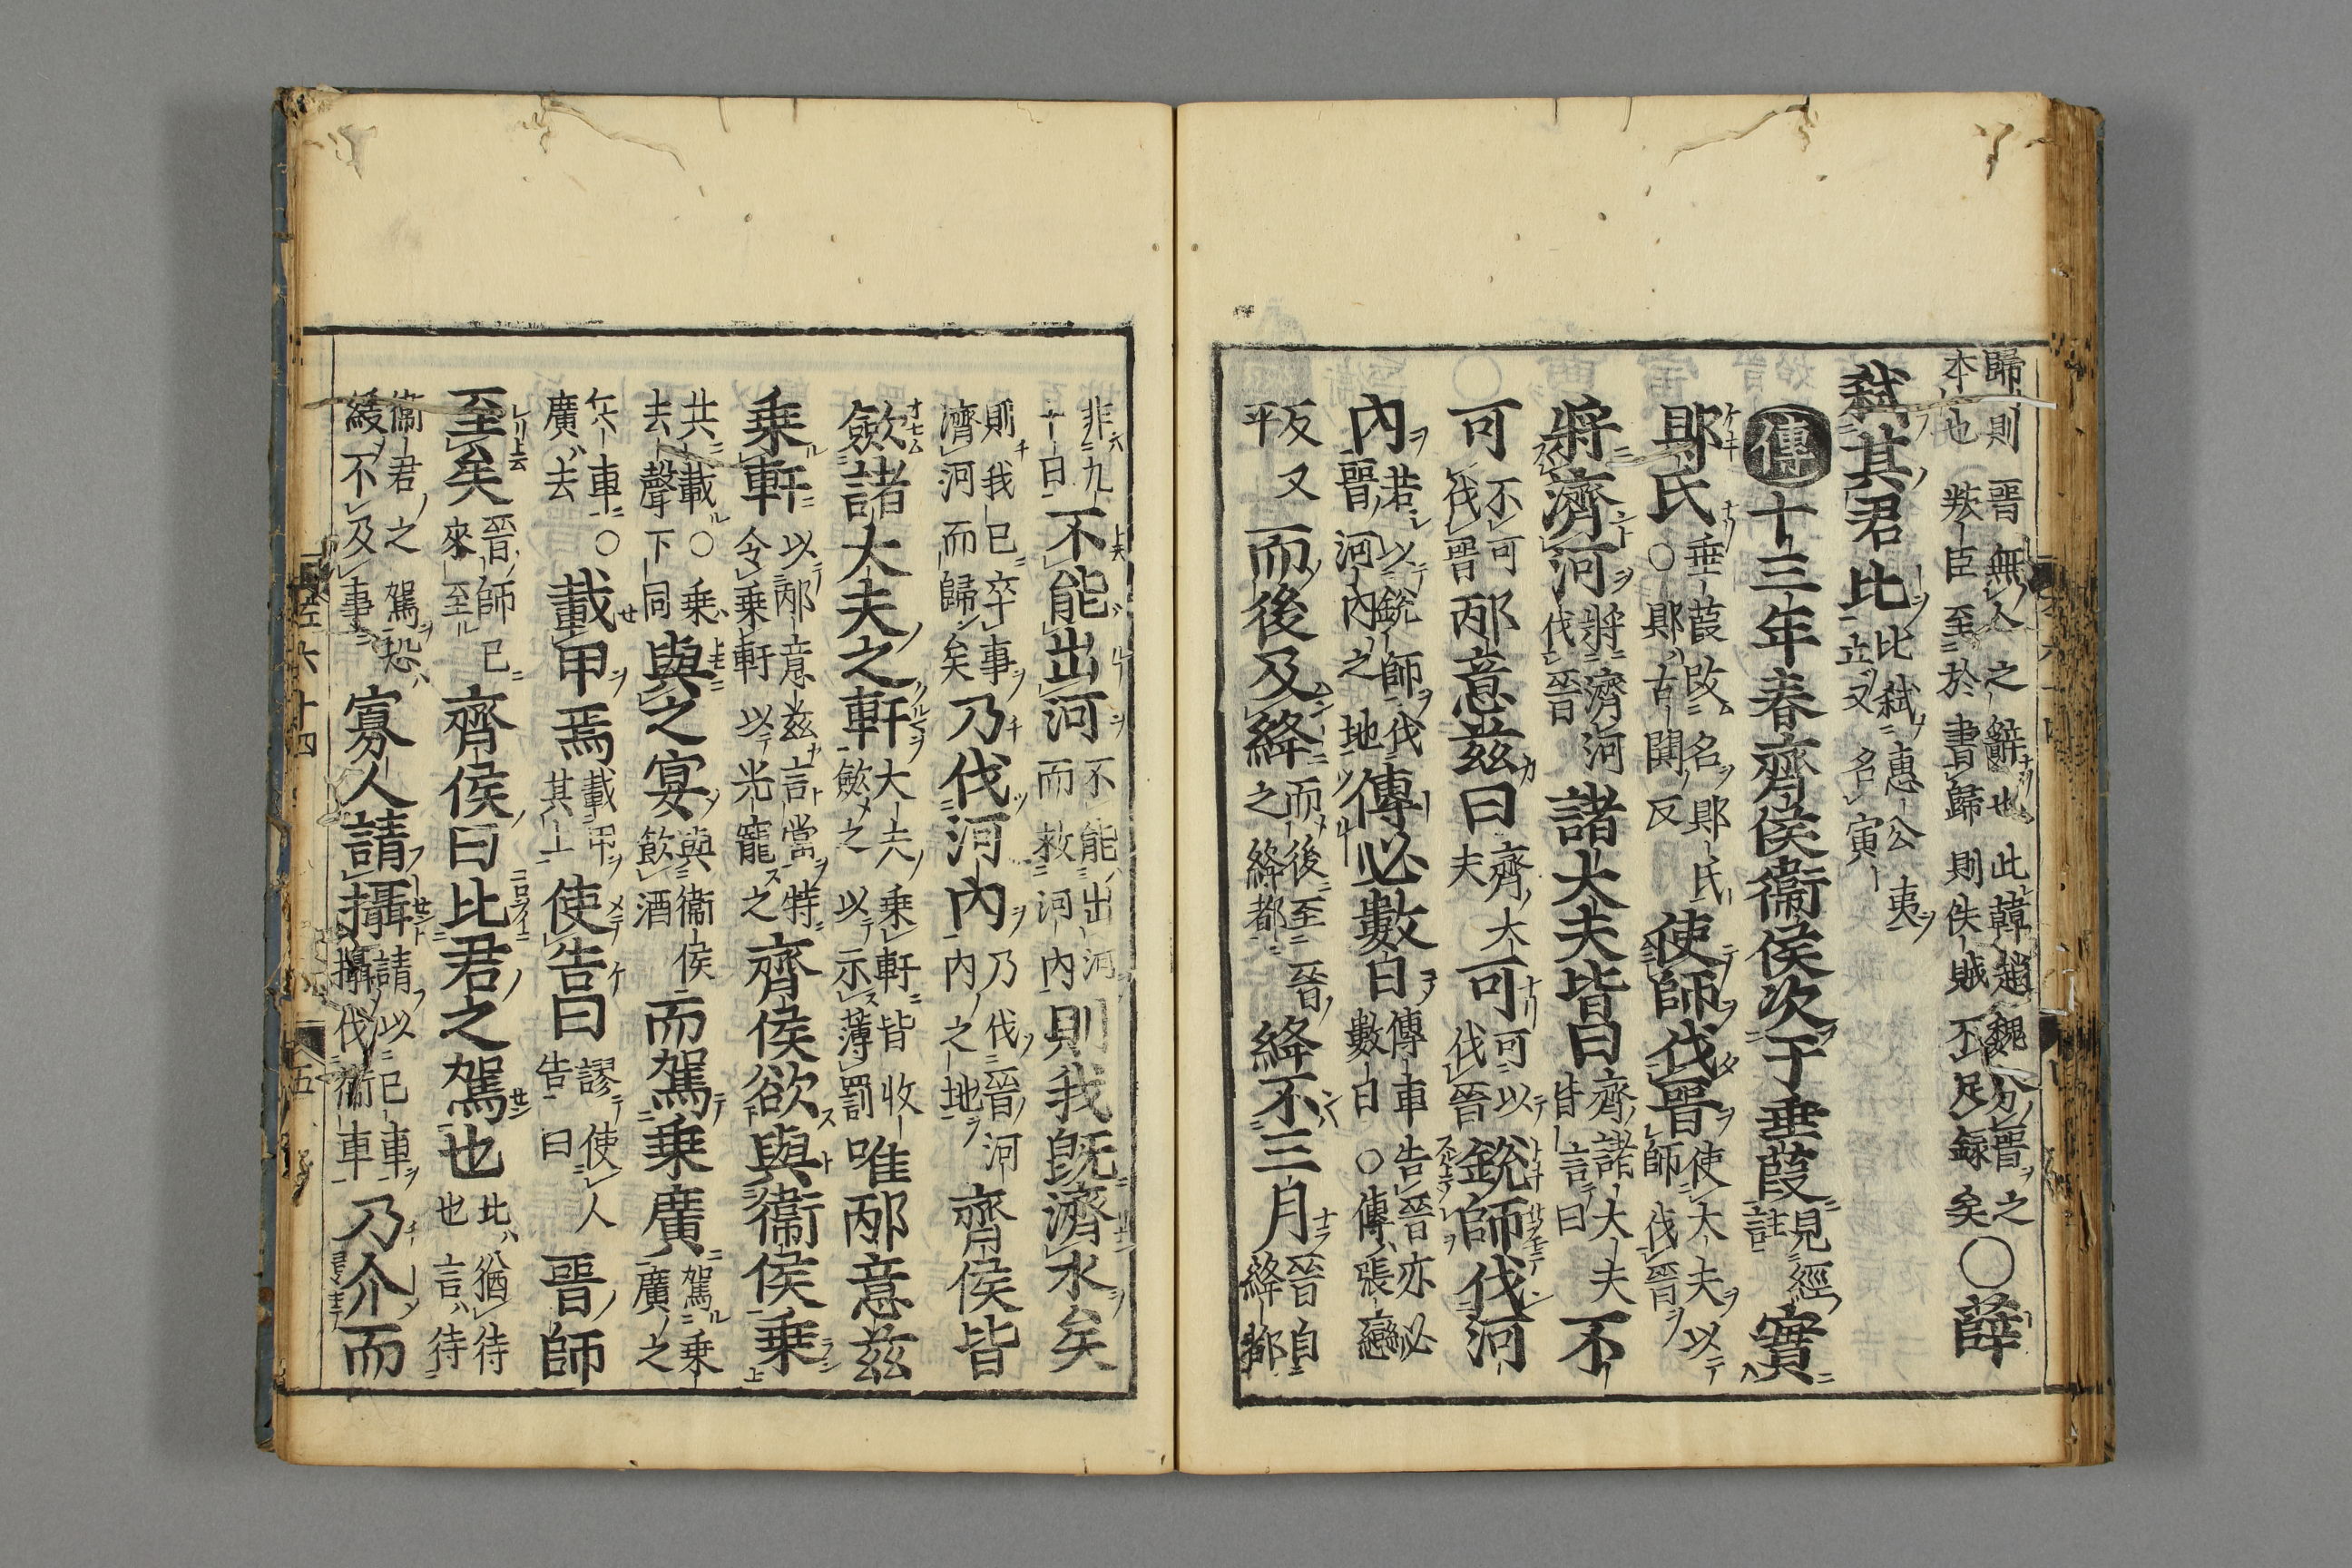 歸則晉無人之辭也此韓趙魏分晉之
本也叛臣至於書歸則佚賊不足錄矣
○薛
弑其君比
比弑惠公夷
立又名寅
傳十三年春齊侯衛侯次于垂葭
見經
註
實
郹氏
垂葭改名郹氏
○郹古闃反
使師伐晉
使大夫以
師伐晉
將濟河
將濟河
伐晉
諸大夫皆曰
齊諸大夫
皆言曰
不
可
不可
伐晉
邴意茲曰
齊大
夫
可
可以
伐晉
銳師伐河
內
若以銳師伐
晉河內之地
傳必數日
傳車告晉亦必
數日○傳張戀
反又
平
而後及絳
而後至晉
之絳都
絳不三月
晉自
絳都
非九
十日
不能出河
不能出河
而救河內
則我既濟水矣
則我已卒事
濟河而歸矣
乃伐河內
乃伐晉河
內之地
齊侯皆
歛諸大夫之軒
大夫乘軒皆收
歛之以示薄罰
唯邴意茲
乘軒
以邴意茲言當特
令乘軒以光寵之
齊侯欲與衛侯乘
共載○乘
去聲下同
與之宴
與衛侯
飲酒
而駕乘廣
駕乘
廣之
兵車○
廣去
載甲焉
載甲
其上
使告曰
謬使人
告曰
晉師
至矣
晉師已
來至
齊侯曰比君之駕也
比猶待
也言待
衛君之駕恐
緩不及事
寡人請攝
請以己車
攝代衛車
乃介而
左六十四
五